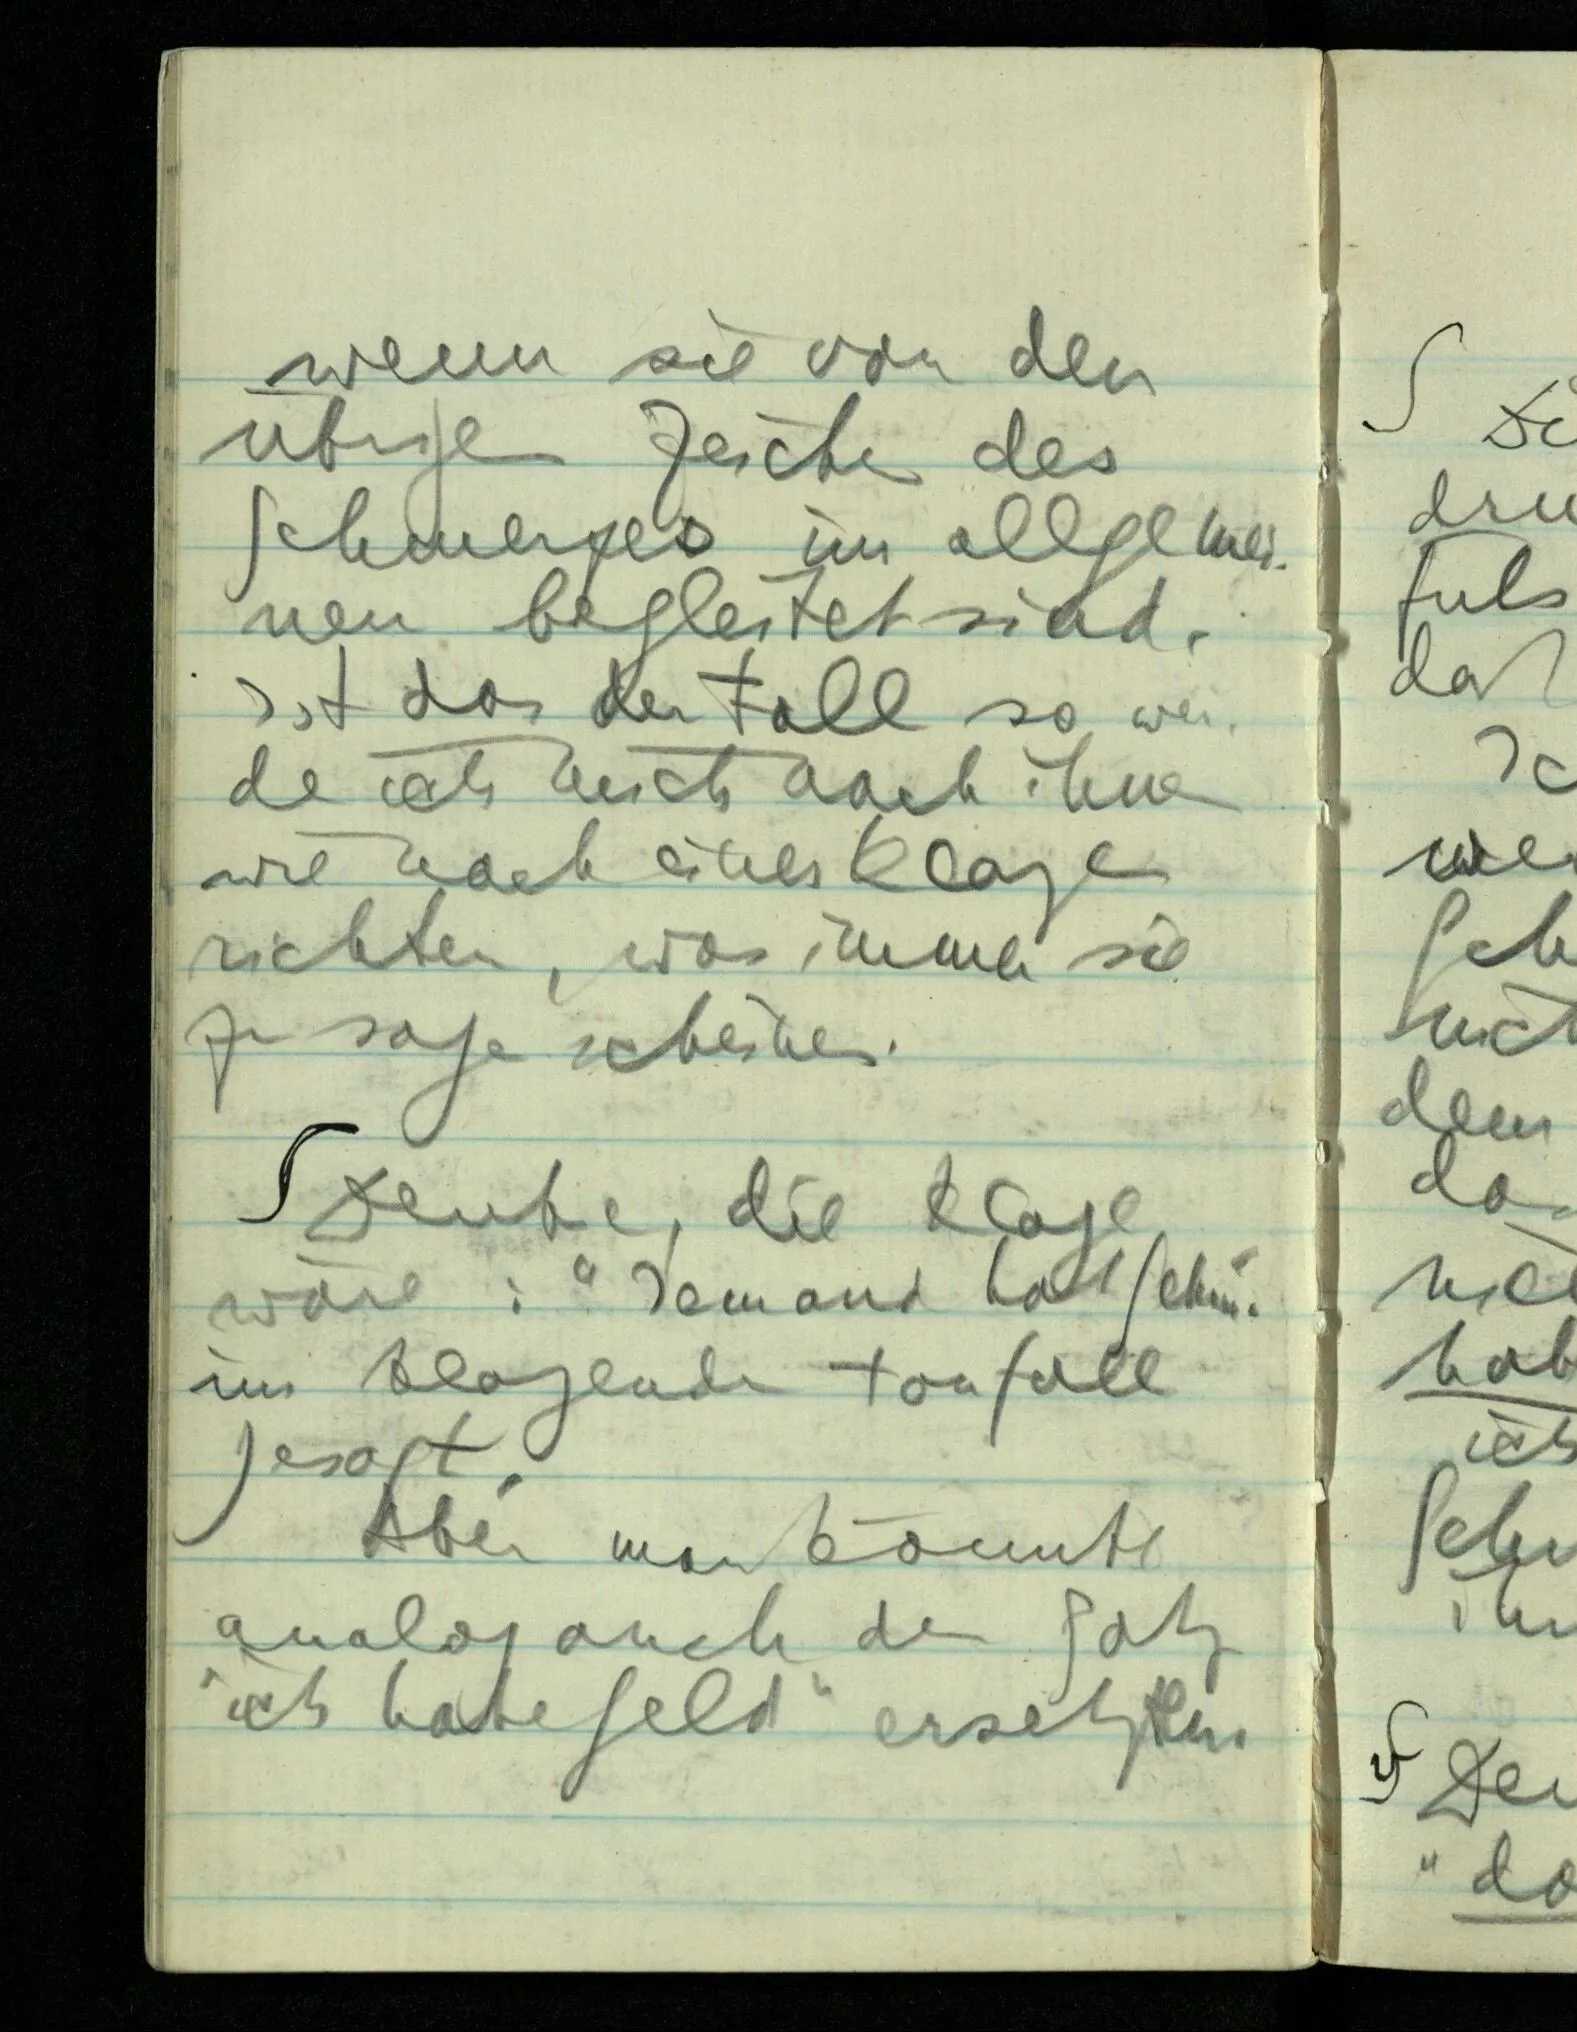 wenn sie von den
übrigen Zeichen des
Schmerzes im allgemei-
nen begleitet sind.
Ist das der Fall so wer-
de ich mich nach ihnen
wie nach einer Klage
richten, was immer sie
zu sagen scheinen.
∫ Denke, die Klage
wäre: "Jemand hat Schm."
im klagenden Tonfall
gesagt.
Aber man könnte
analog auch den Satz
"ich habe Geld" ersetzen
∫
dru
fuls
daß
Ic
wer
Sch
nich
dem
das
nich
hab
ich
Schm
ihn
∫ Den
"da